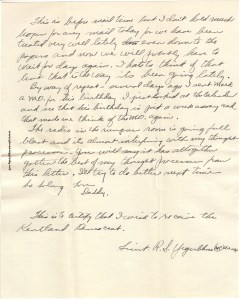 This is before mail time but I don't hold much
hopes for any mail today for we have been
treated very well lately even down to the
papers and now we will probably have to
wait for days again. I hate to think of that
but that is the way its been going lately.
By way of repeat, several days ago I sent Mark
a M.O. for his birthday. I just looked at the calendar
and see that his birthday is just a week away and
that made me think of the M.O. again.
The radio in the room is going full
blast and its almost interfering with my thought
processes. You will say it has altogether
gotten the best of my thought processes from
this letter. I'll try to do better next time
so long now
Daddy.
This is to certify that I wish to receive the
Kentland Democrat.
Lieut R. S.